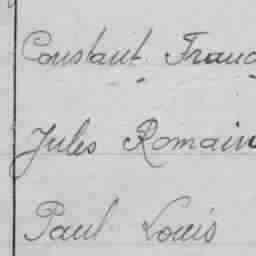 Constant Franç
Jules Romain
Paul Louis